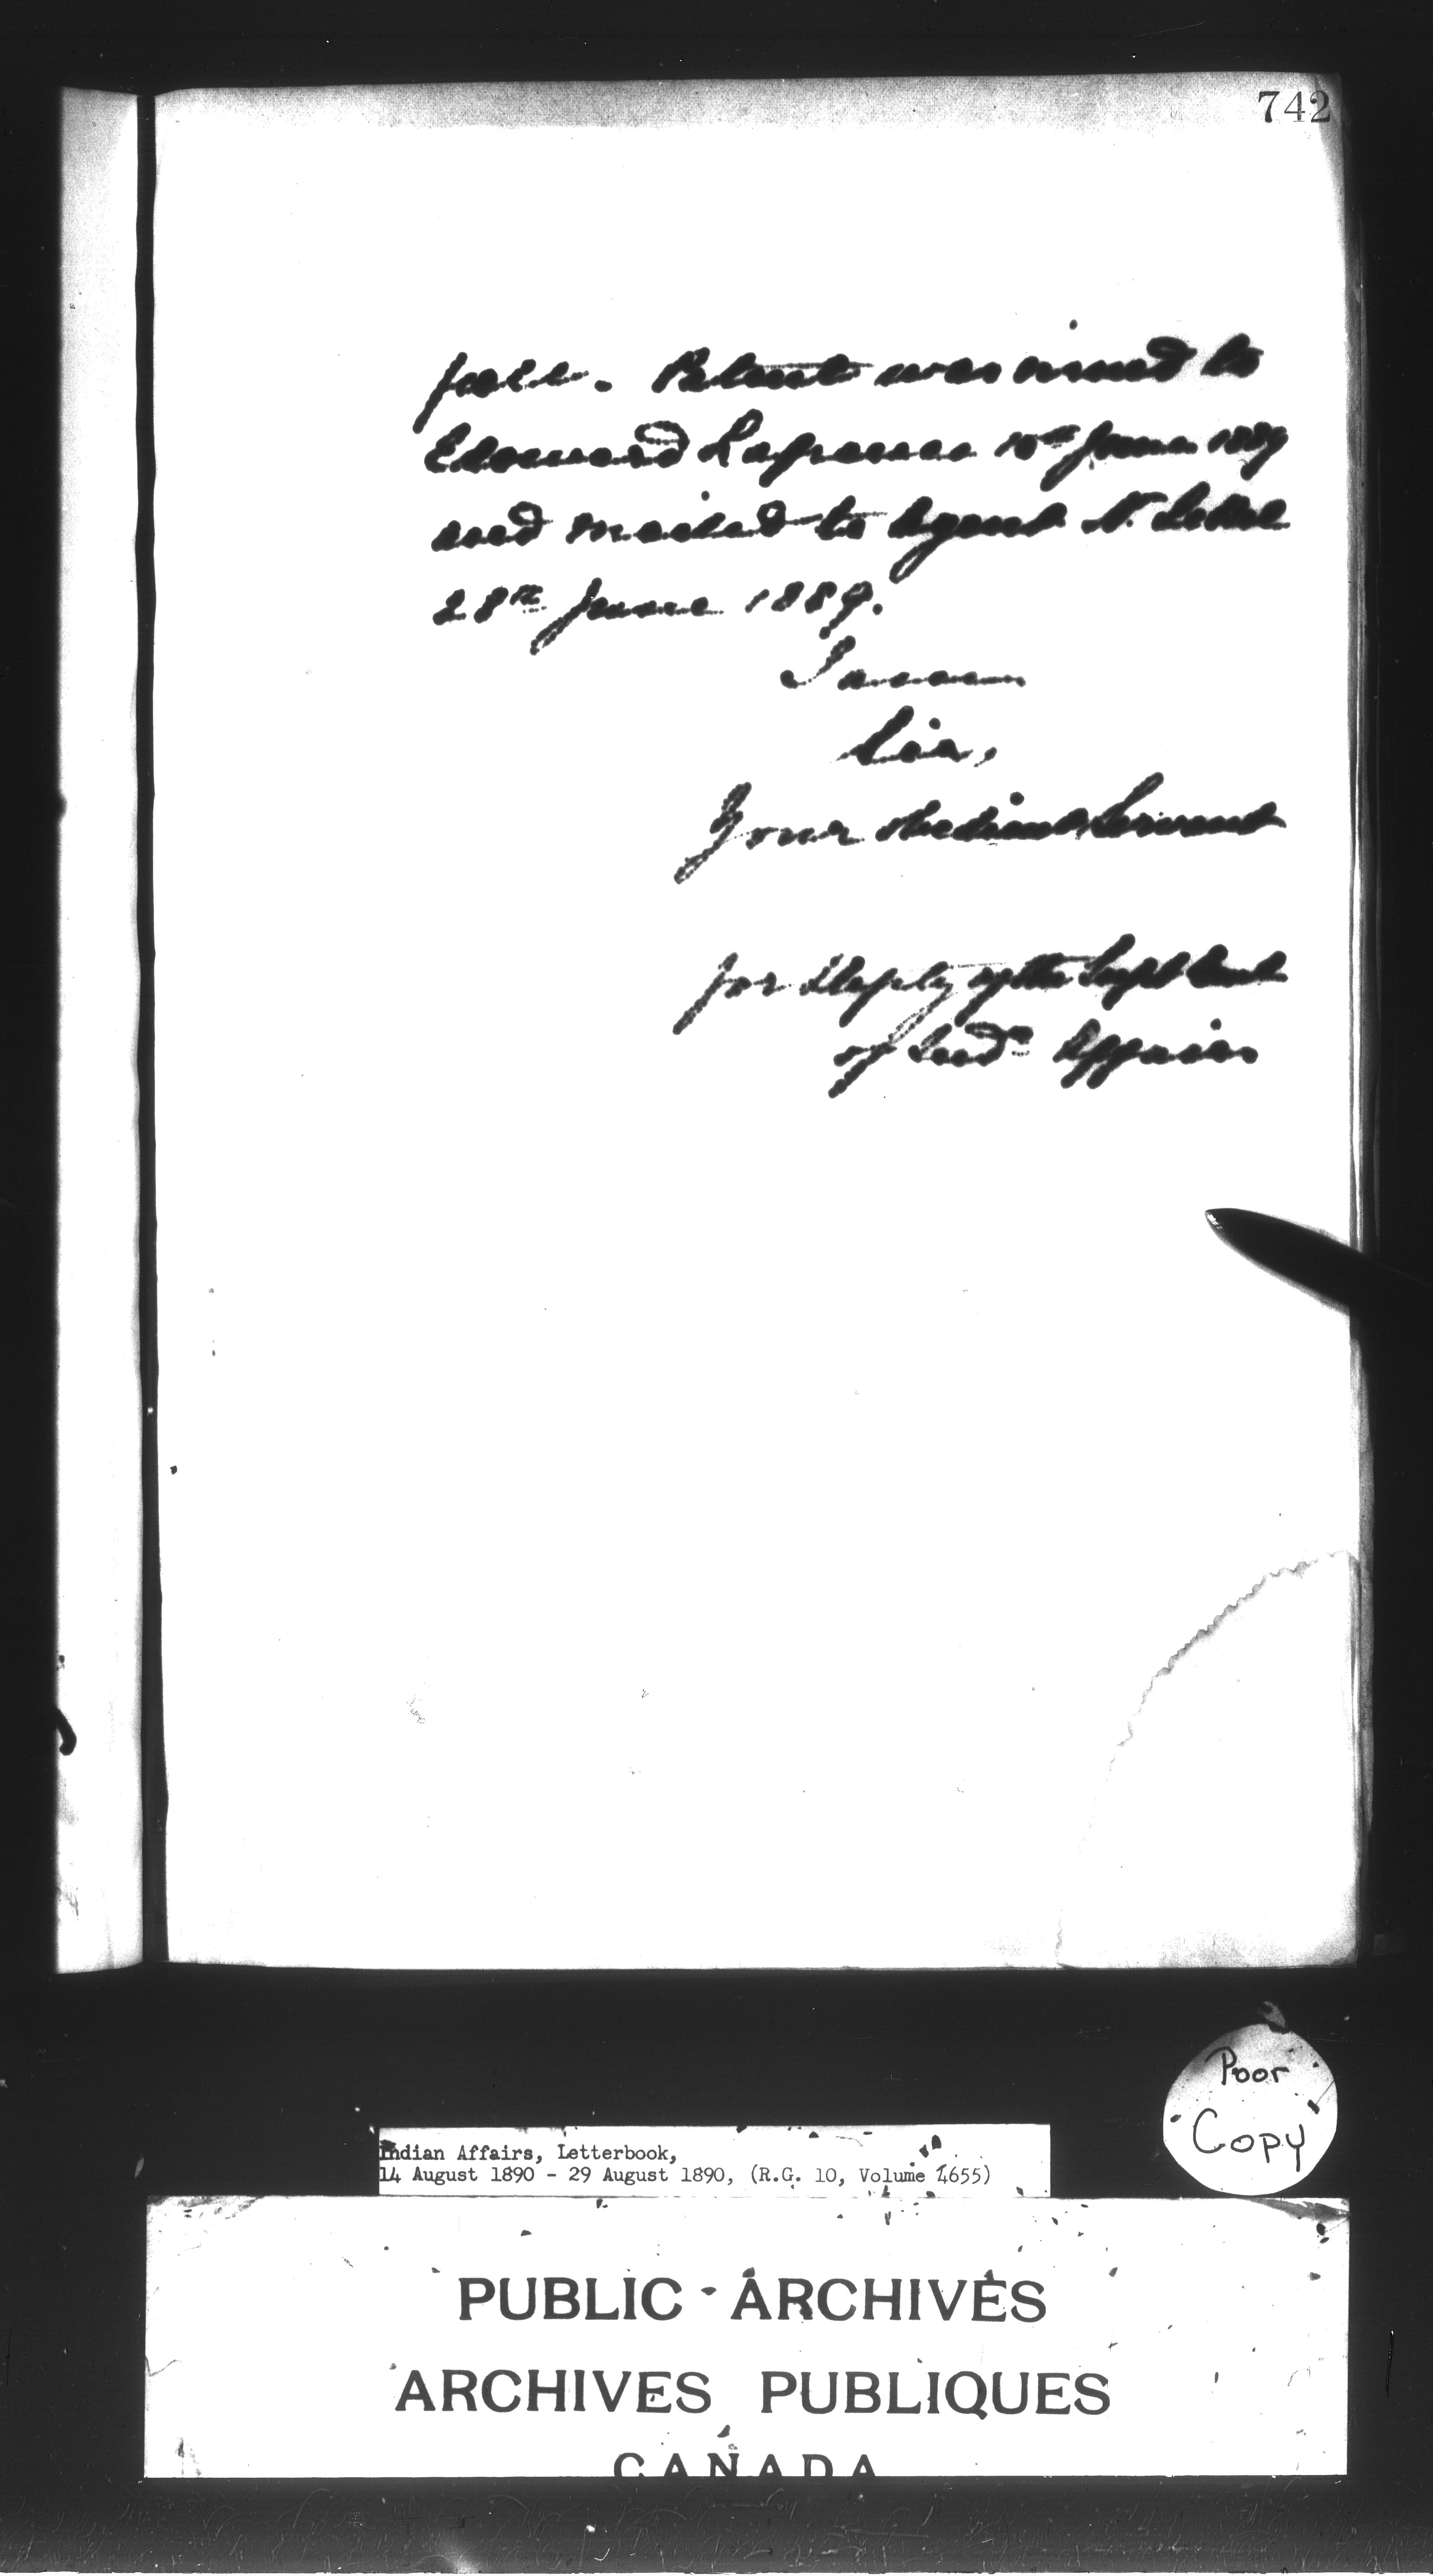 742
full. Patent was issued to
Edouard 10th June 1889
and mailed to Agent N.
28th June 1889.
I am
Sir,
Your obedient Servant
for Deputy of the Supt Genl
of Indn Affairs
Poor
Copy
Indian Affairs, Letterbook,
14 August 1890 - 29 August 1890, (R.G. 10, Volume 4655)
PUBLIC ARCHIVES
ARCHIVES PUBLIQUES
CANADA